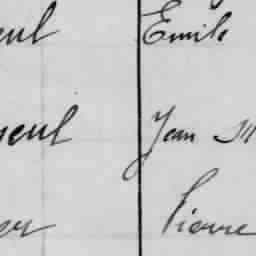 eul Emile
neul Jean M
er Pierre